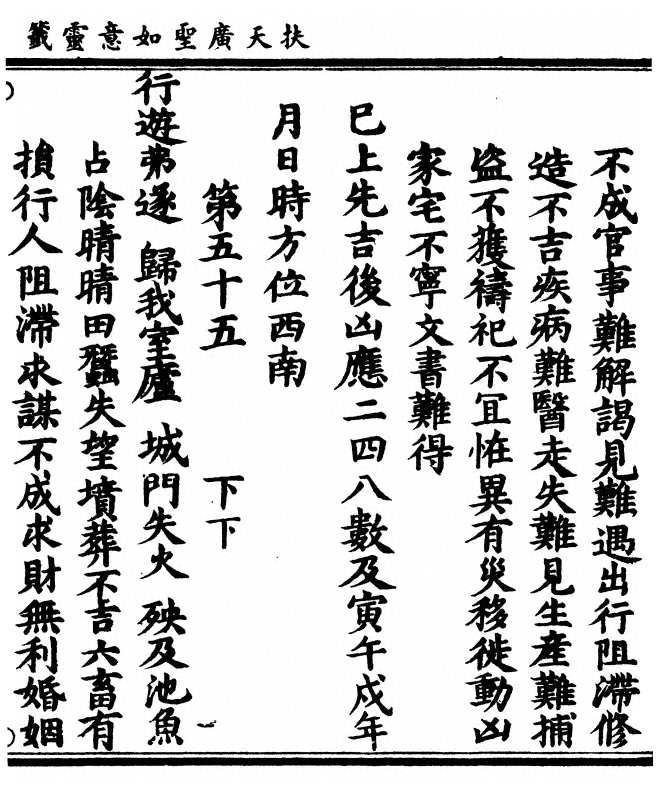 扶天廣聖如意靈籤
不成官事難解謁見難遇出行阻滯修
造不吉疾病難醫走失難見生產難捕
盜不獲禱祀不冝恠異有災移徙動凶
家宅不寧文書難得
巳上先吉後凶應二四八數及寅午戌年
月日時方位西南
第五十五　下下
行遊弗遂　歸我室廬　城門失火　殃及池魚
占陰晴晴田蠶失望墳葬不吉六畜有
損行人阻滯求謀不成求財無利婚姻